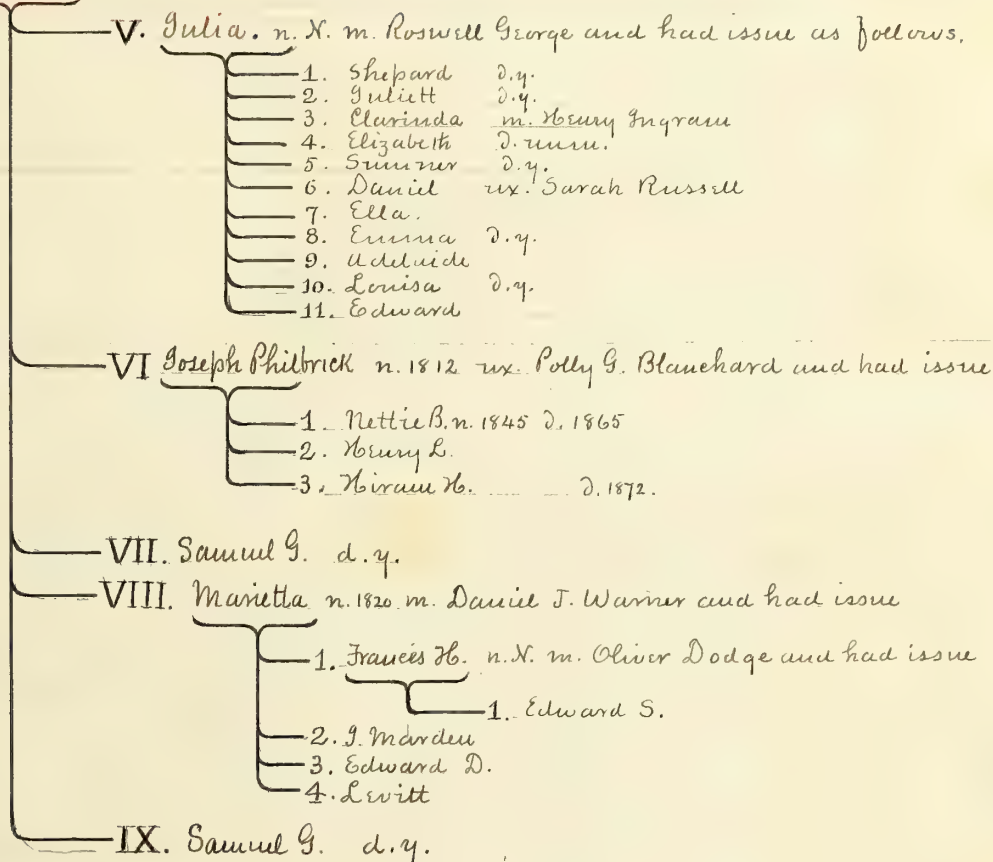 V. Julia. n. N. m. Roswell George and had issue as follows.
1. Shepard d.y.
2. Juliett d.y.
3. Clarinda m. Henry Ingram
4. Elizabeth d. unm.
5. Sumner d.y.
6. Daniel ux. Sarah Russell
7. Ella.
8. Emma d.y.
9. Adelaide
10. Louisa d.y.
11. Edward
VI Joseph Philbrick n. 1812 ux. Polly G. Blanchard and had issue
1. Nettie B. n. 1845 d. 1865
2. Henry L.
3. Hiram H. d. 1872.
VII. Samuel G. d.y.
VIII. Marietta n. 1820 m. Daniel J. Warner and had issue
1. Frances H. n. N. m. Oliver Dodge and had issue
1. Edward S.
2. J. Marden
3. Edward D.
4. Levitt
IX. Samuel G. d.y.